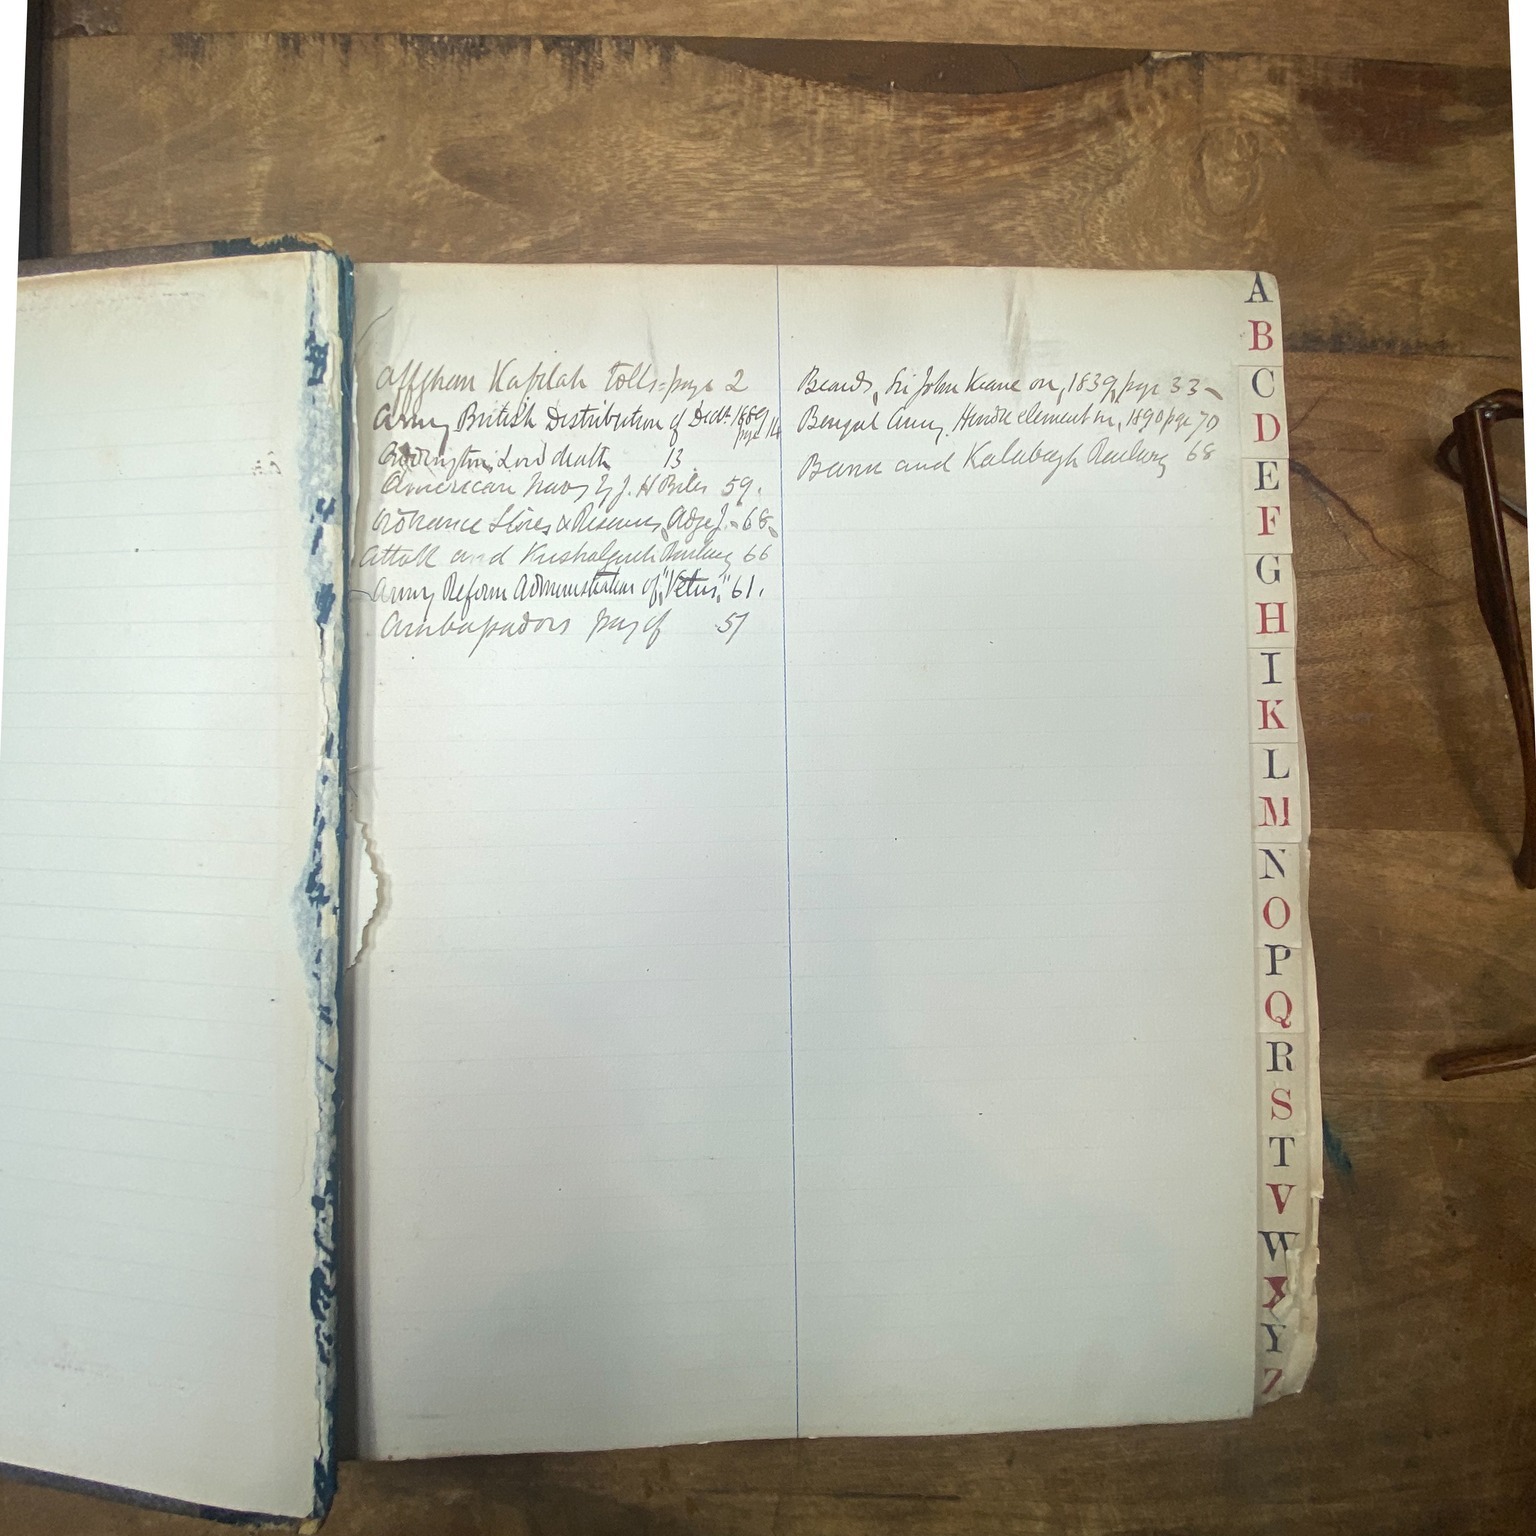 Affghan Kafilah tolls = page 2
Army British Distribution of Decbr. 1889 page 14
Lord death 13
American Navy by J. H Biles 59.
Ordnance Stores & Reserves, 68
Attok and Kushalgurh Railway 66
Army Reform Administration of "Vetus," 61.
Ambassadors pay of 57
Beards, Sir John Keane on, 1839, page 33
Bengal Army. Hindu element in, 1890 page 70
Bannu and Kalabagh Railway 68
A
B
C
D
E
F
G
H
I
K
L
M
N
O
P
Q
R
S
T
V
W
X
Y
Z